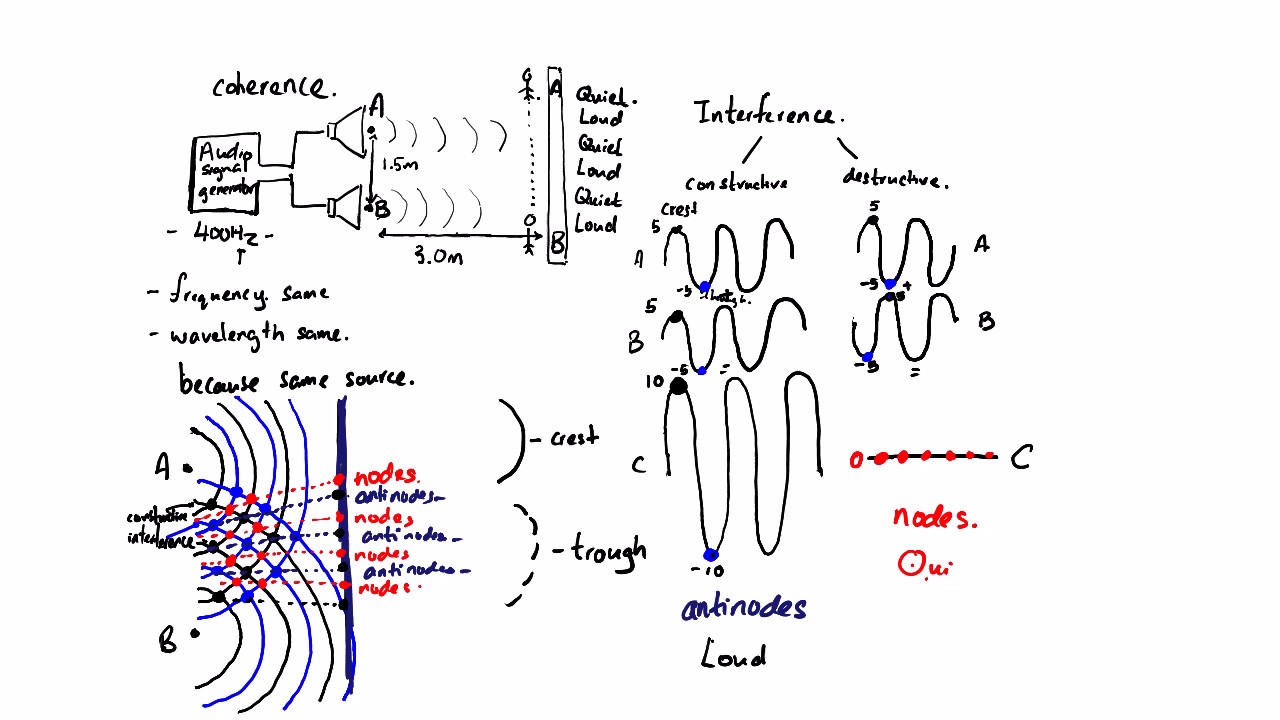 coherence.
Audio
signal
generator
- 400Hz -
A
B
1.5m
3.0m
A
B
Quiet.
Loud
Quiet
Loud
Quiet
Loud
- frequency. same
- wavelength same.
because same source.
A
B
constructive
interference
nodes.
antinodes-
nodes
antinodes-
nodes
antinodes-
nodes.
- crest
- trough
Interference.
constructive
destructive.
crest
5
A
-5
trough.
5
B
-5 =
10
C
-10
antinodes
Loud
5
A
-5 +
5
B
-5 =
0
C
nodes.
Qui